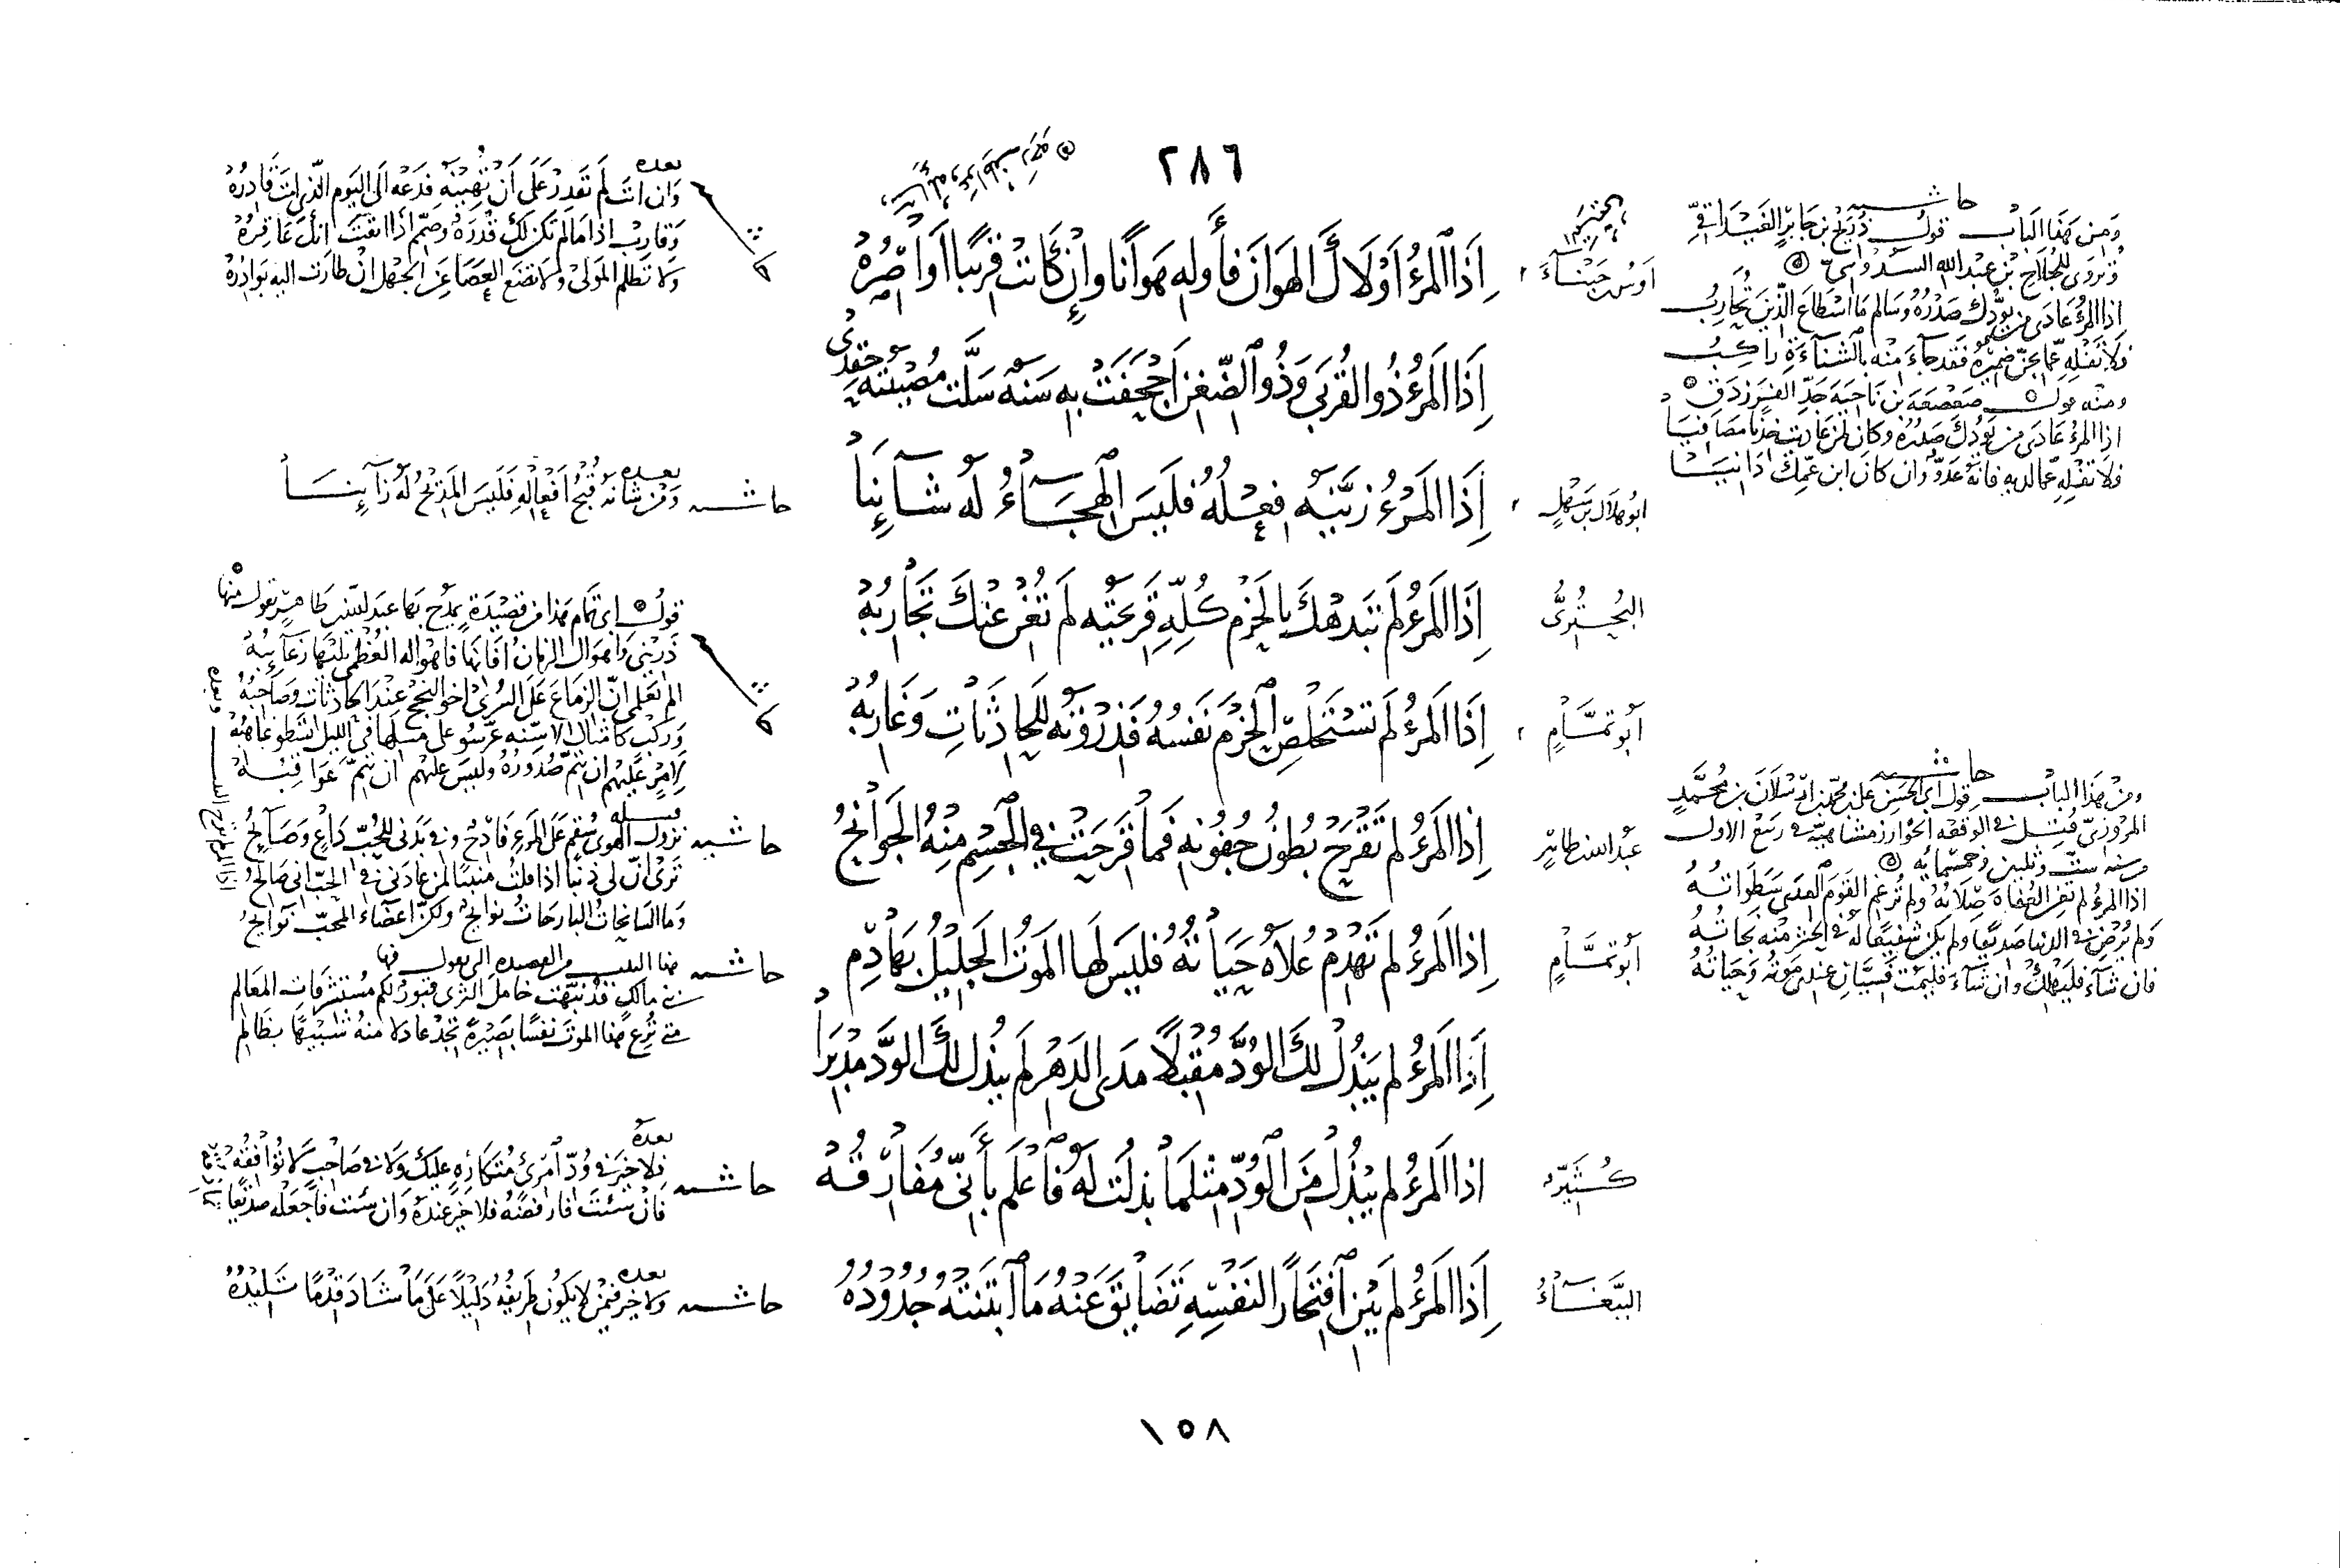 ٢٨٦
حاشية
ومن هذا الباب قول ذريح بن جابر
وتروى للجلاح بن عبد الله السدوسي
إذا المرء عادى من يودك صدره وسالم ما اسطاع الذين تحارب
فلا تفله عما يجن ضميره فقد جاء منه بالشناءة راكب
ومنه قول صعصعة بن ناجية جد الفرزدق
إذا المرء عادى من يودك صدره وكان لمن عاديت خدنا مصافيا
فلا تفله عما لديه فإنه عدو وإن كان ابن عمك دانيا
أوس بن حبناء
إِذَا المَرْءُ أَوْلَاكَ الهَوَانَ فَأَولِهِ هَوَانًا وإِنْ كَانَتْ قَرِيبًا أَوَاصِرُهْ
بعده
وإن أنت لم تقدر على أن تهينه فدعه إلى اليوم الذي أنت قادره
وقارب إذا ما لم تكن لك قدرة وصمم إذا أيقنت أنك عاقره
ولا تظلم المولى ولا تضع العصا عن الجهل إن طارت إليه بوادره
إِذَا المَرْءُ ذُو القُرْبَى وَذُو الضِّغْنِ أَجْحَفَتْ بِهِ سَنَةٌ سَلَّتْ مُصِيبَتُهُ حِقْدِي
أبو هلال بن سهل
إِذَا المَرْءُ زَيَّنَهُ فِعْلُهُ فَلَيْسَ الهِجَاءُ لَهُ شَائِنَا
حاشية
بعده
ومن شانه قبح أفعاله فليس المديح له زائنا
البحتري
إِذَا المَرْءُ لَمْ تَبْدَهْكَ بِالحَزْمِ كُلِّهِ قَرِيحَتُهُ لَمْ تُغْنِ عَنْكَ تَجَارِبُهْ
أبو تمام
إِذَا المَرْءُ لَمْ تَسْتَخْلِصِ الحَزْمَ نَفْسُهُ فَذِرْوَتُهُ لِلحَادِثَاتِ وَغَارِبُهْ
قول أبي تمام هذا من قصيدة يمدح بها عبد الله بن طاهر يقول منها
ذريني وأهوال الزمان أفانها فأهواله العظمى تليها رغائبه
ألم تعلمي أن الزماع على السرى أخو النجح عند الحادثات وصاحبه
وركب كأمثال الأسنة عرسوا على مثلها في الليل تسطو غياهبه
لأمر عليهم أن تتم صدوره وليس عليهم أن تتم عواقبه
عبد الله بن طاهر
إِذَا المَرْءُ لَمْ تَقْرَحْ بُطُونُ جُفُونِهِ فَمَا قَرِحَتْ فِي الجِسْمِ مِنْهُ الجَوَانِحُ
حاشية
قبله
نزول الهوى سقم على المرء فادح وفي بدني للحب داع وصائح
ترى أن لي ذنبا إذا قلت
وما السانحات البارحات نوائح ولكن أعضاء المحب نوائح
حاشية
ومن هذا الباب قول أبي الحسن علي بن محمد بن أرسلان بن محمد
المروزي قتل في الوقعة الخوارزمشاهية في ربيع الأول
من سنة ست وثلثين وخمسمائة
إذا المرء لم تغن العفاة صلاته ولم ترغم القوم العدى سطواته
ولم يرض في الدنيا صديقا ولم يكن شفيعا له في الحشر منه نجاته
فإن شاء فليهلك وإن شاء فليمت فسيان عندي موته وحياته
أبو تمام
إِذَا المَرْءُ لَمْ تَهْدِمْ عُلَاهُ حَيَاتُهُ فَلَيْسَ لَهَا المَوْتُ الجَلِيلُ بِهَادِمِ
حاشية
هذا البيت من القصيدة التي يقول فيها
بني مالك قد نبهت خامل الثرى قبور لكم مستشرفات المعالم
متى ترع هذا الموت نفسا بصيرة تجد عادلا منه شبيها بظالم
إِذَا المَرْءُ لَمْ يَبْذُلْ لَكَ الوُدَّ مُقْبِلًا مَدَى الدَّهْرِ لَمْ يَبْذُلْ لَكَ الوُدَّ مُدْبِرَا
كثير
إِذَا المَرْءُ لَمْ يَبْذُلْ مِنَ الوُدِّ مِثْلَمَا بَذَلْتُ لَهُ فَاعْلَمْ بِأَنِّي مُفَارِقُهْ
حاشية
بعده
فلا خير في ود امرئ متكاره عليك ولا في صاحب لا توافقه
فإن شئت فارفضه فلا خير عنده وإن شئت فاجعله صديقا
الببغاء
إِذَا المَرْءُ لَمْ يَبْنِ افْتِخَارًا لِنَفْسِهِ تَضَايَقَ عَنْهُ مَا ابْتَنَتْهُ جُدُودُهُ
حاشية
بعده
ولا خير فيمن لا يكون طريفه دليلا على ما شاد قدما تليده
١٥٨